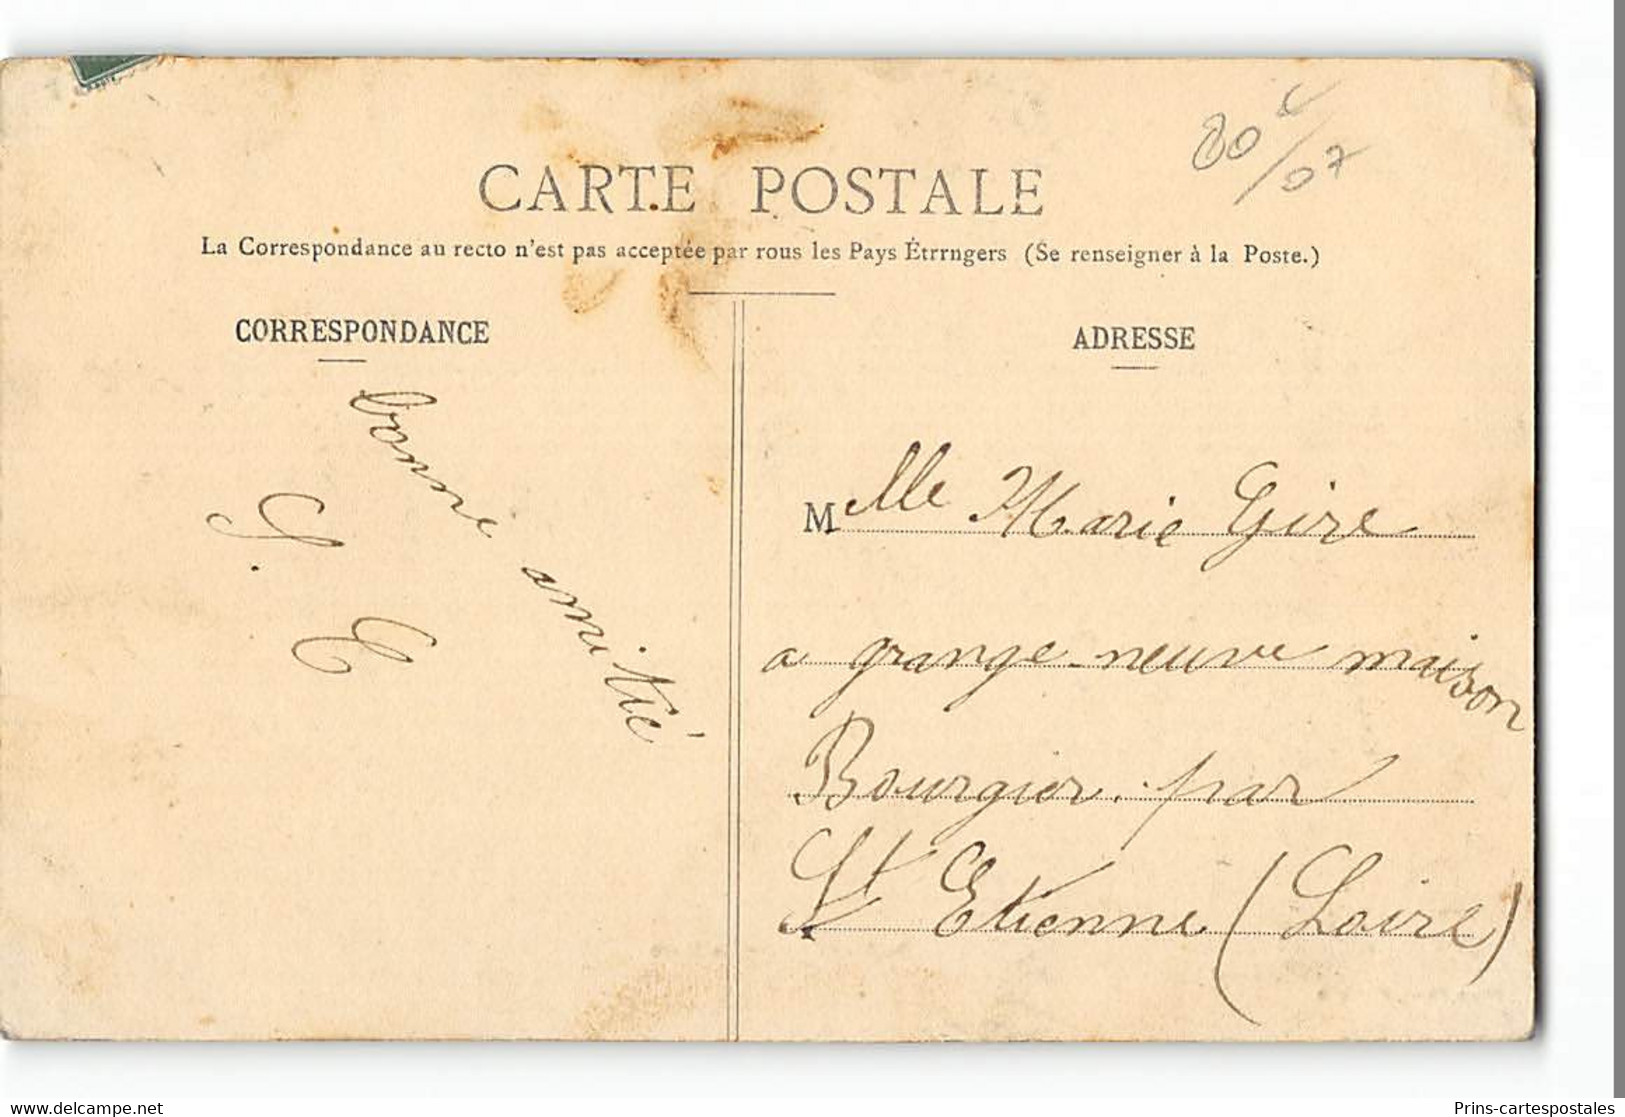 80 c/07
CARTE POSTALE
La Correspondance au recto n'est pas acceptée par rous les Pays Étrrngers (Se renseigner à la Poste.)
CORRESPONDANCE
bonne amitié
S. E
ADRESSE
Melle Marie Gire
a grange-neuve maison
Bourgier. par
St Etienne (Loire)
www.delcampe.net
Prins-cartespostales